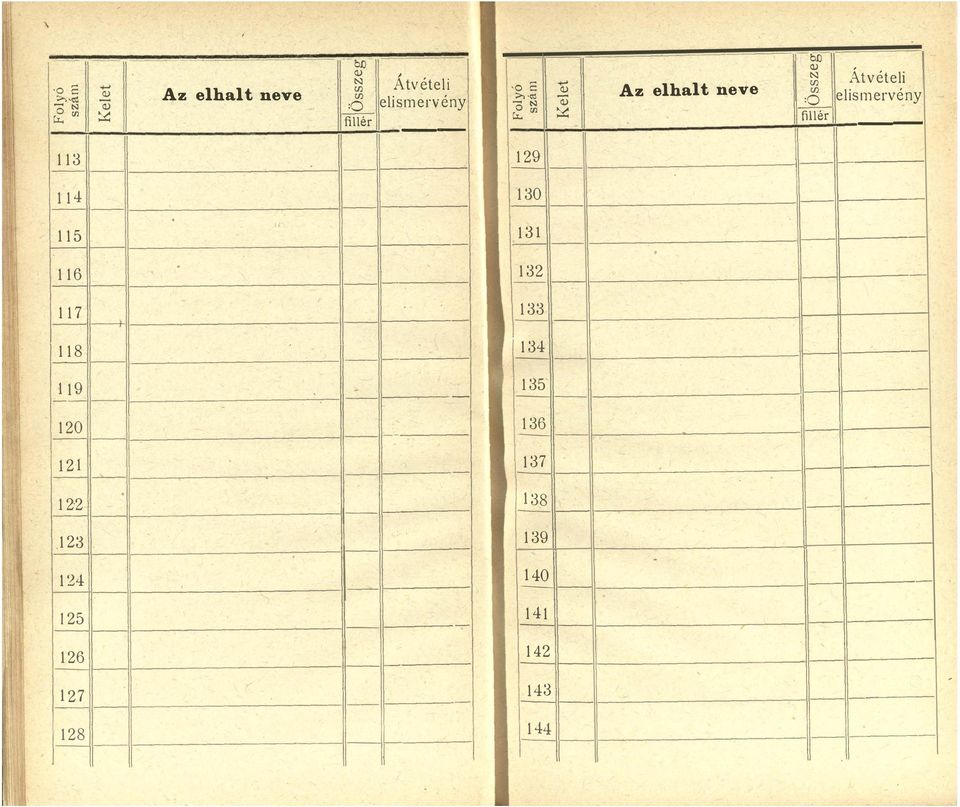 Folyó szám Kelet Az elhalt neve Összeg fillér Átvételi elismervény
113
114
115
116
117
118
119
120
121
122
123
124
125
126
127
128
Folyó szám Kelet Az elhalt neve Összeg fillér Átvételi elismervény
129
130
131
132
133
134
135
136
137
138
139
140
141
142
143
144